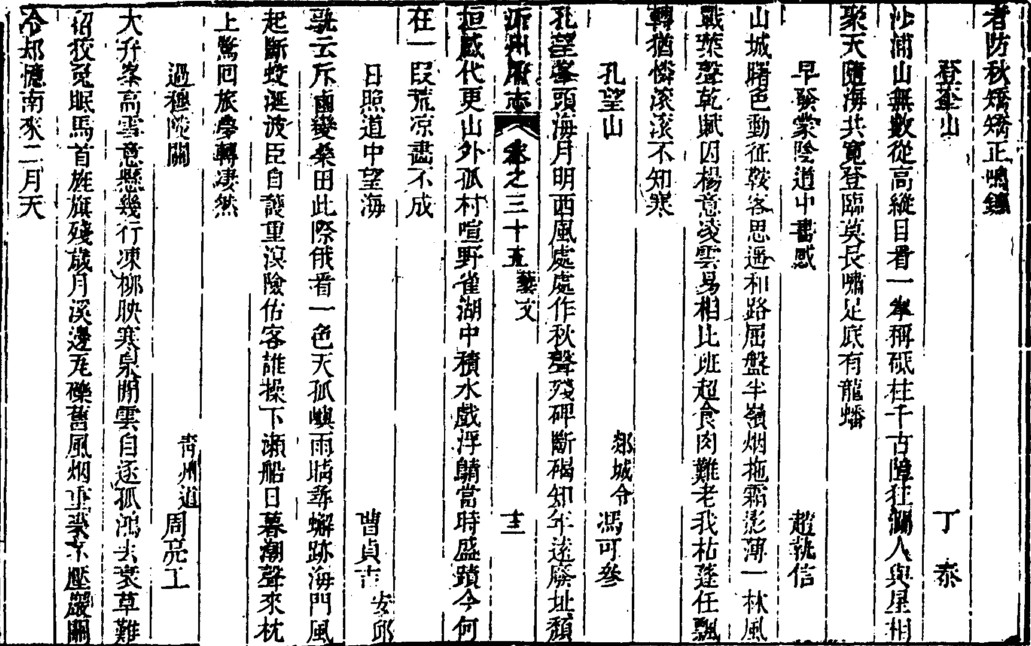 者防秋矯矯正鳴鑣
登奎山 丁泰
沙浦山無數從高縱目看一拳稱砥柱千古障狂瀾人與星相
聚天隨海共寬登臨莫長嘯足底有龍蟠
早發蒙陰道中書感 趙執信
山城曙色動征鞍客思逼和路屈盤半嶺烟拖霜影薄一林風
戰葉聲乾賦因楊意凌雲易相比班超食肉難老我枯蓬任飄
轉猶憐滚滚不知寒
孔望山 郯城令馮可參
孔望峯頭海月明西風處處作秋聲殘碑斷碣知年遠廢址頹
沂州府志 卷之三十五 藝文 十三
垣感代更山外孤村喧野雀湖中積水戲浮鯖當時盛蹟今何
在一段荒凉畫不成
日照道中望海 曹貞吉 安邱
孰云斥鹵變桑田此際俄看一色天孤嶼雨晴尋蠏跡海門風
起斷蛟涎波臣自護重溟險估客誰操下瀨船日暮潮聲來枕
上驚囘旅夢轉凄然
過穆陵關 青州道周亮工
大弁峯高雪意懸幾行凍柳映寒泉閒雲自逐孤鴻去衰草難
招狡兔眠馬首旌旗殘歲月溪邊瓦礫舊風烟重裘不壓嚴關
冷却憶南來二月天